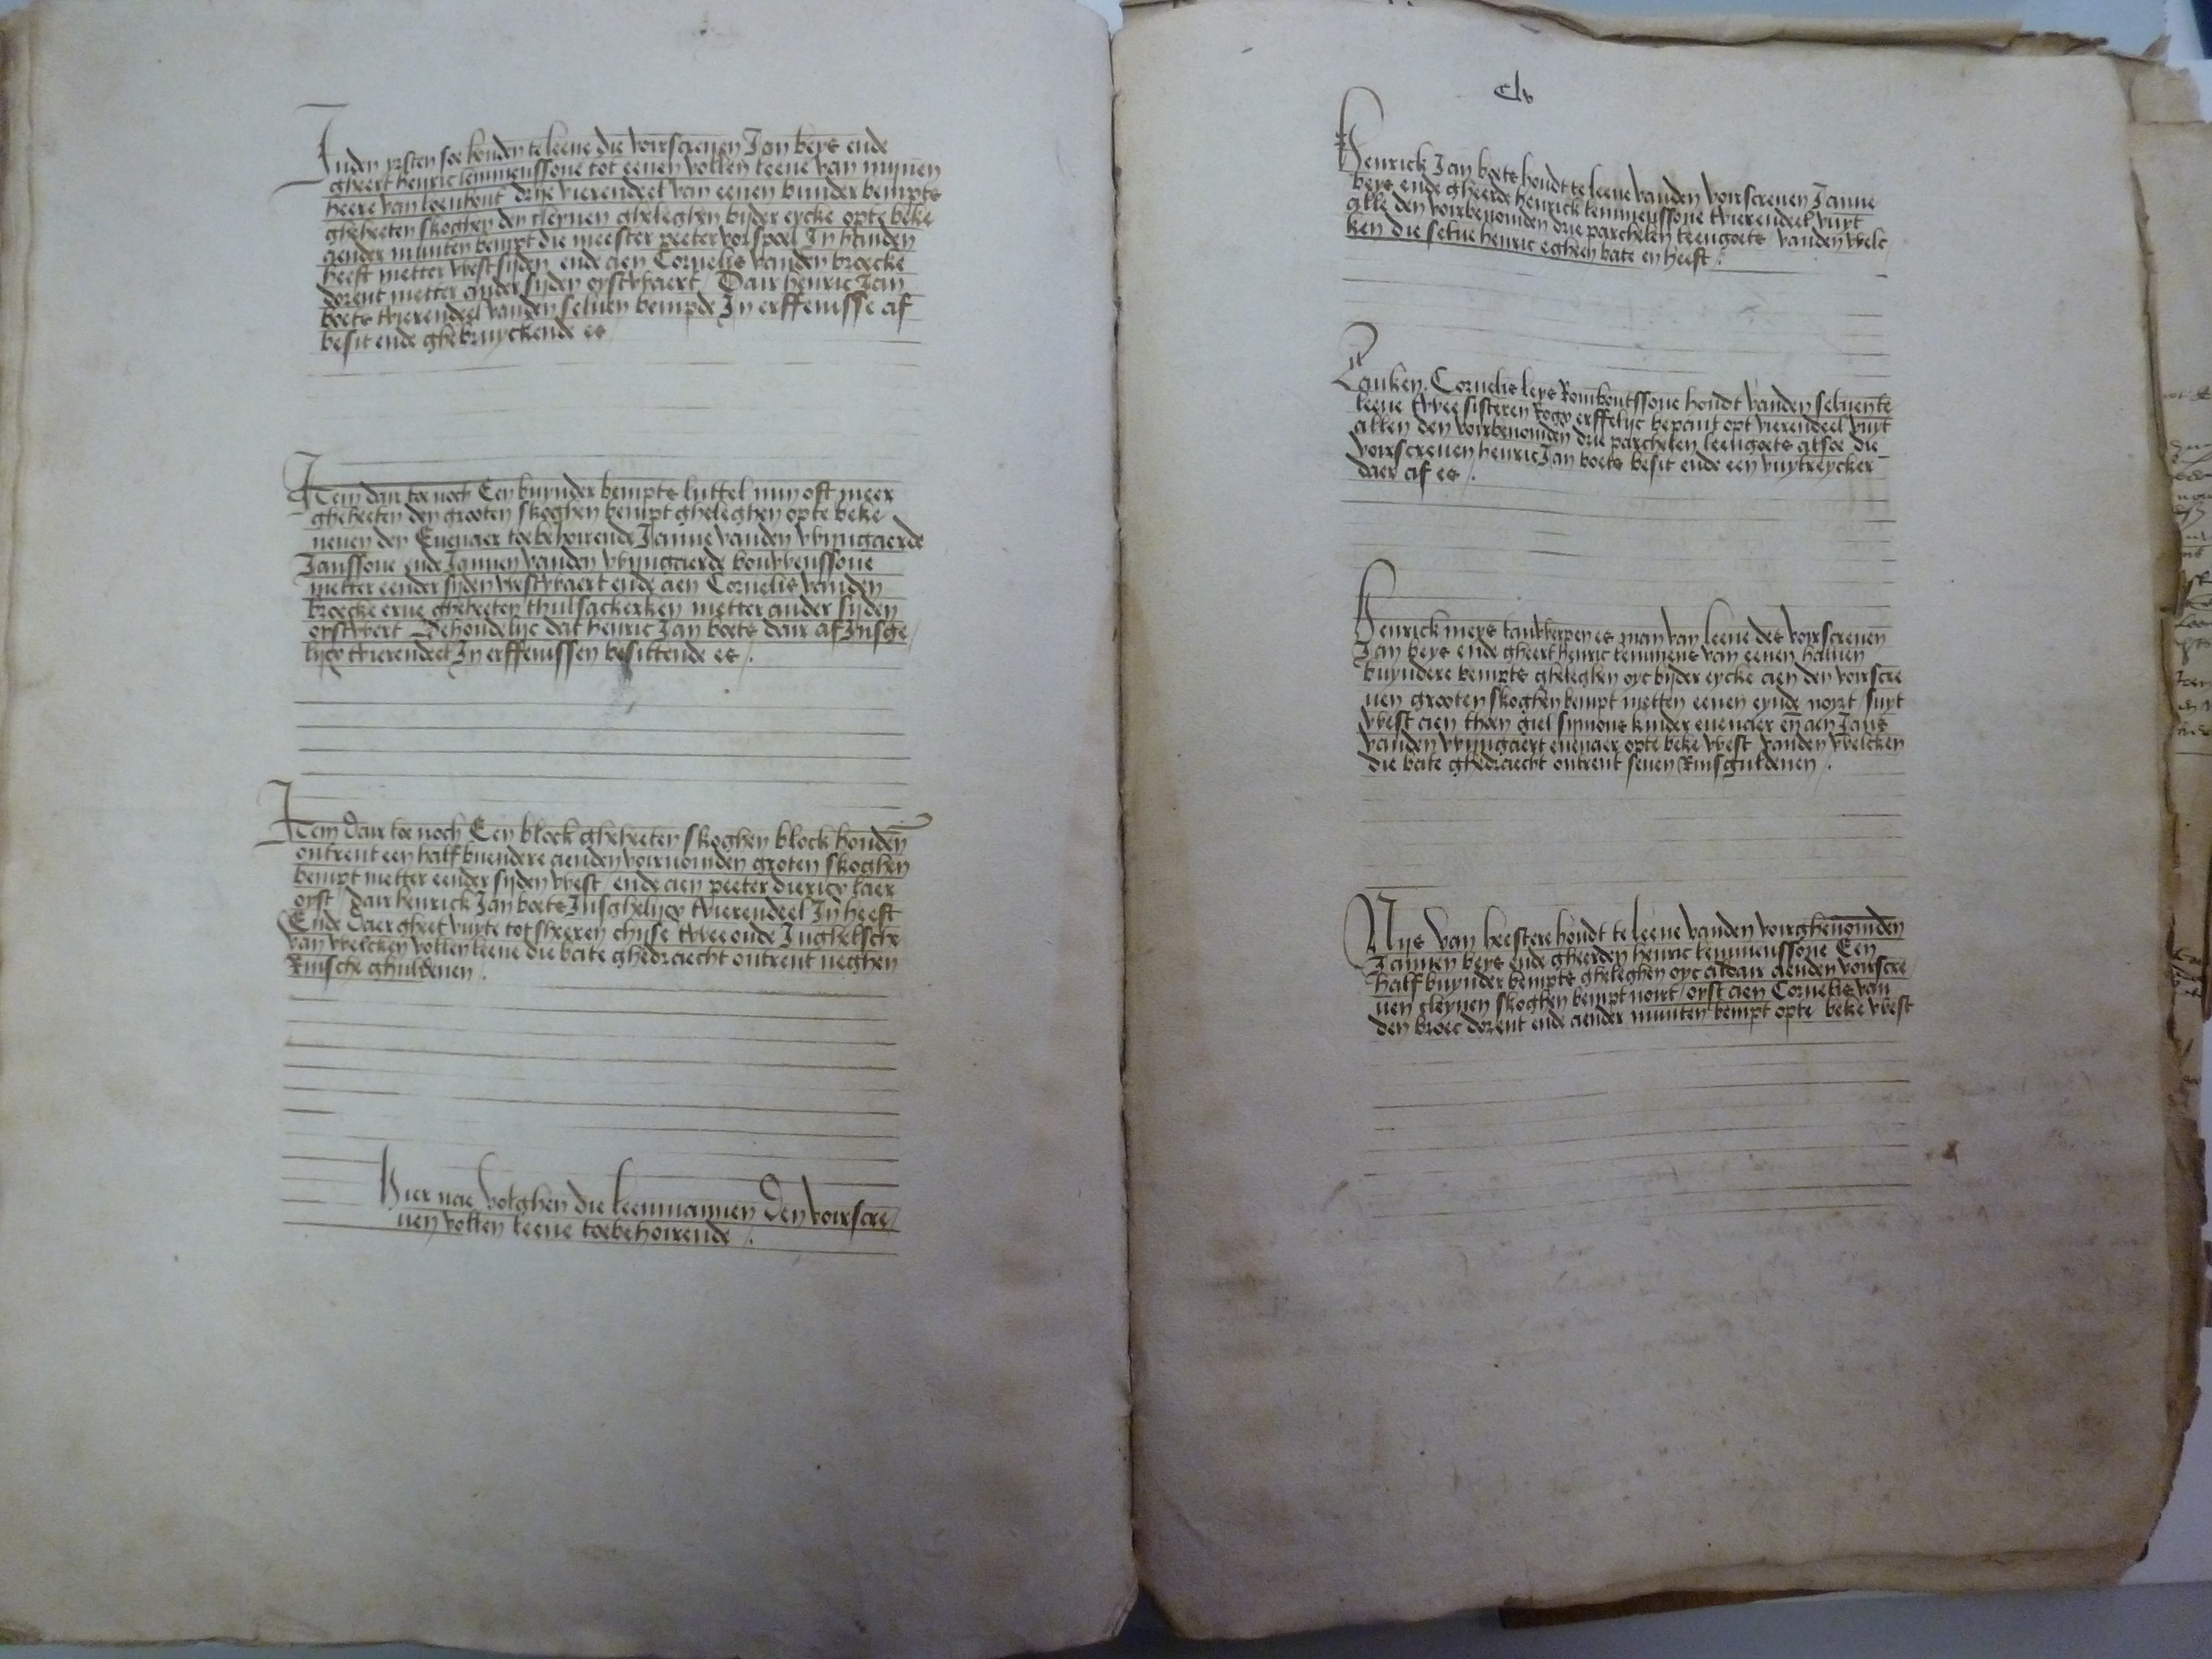 Inden yrsten soe houden te leene die voirscreuen Jan beys ende
gheert henric lemmenssone tot eenen vollen leene van mijnen
heere van loenhout drije vierendeel van eenen bunder bempts
gheheeten skoghen den cleynen gheleghen bijder eycke opte beke
aender munten bempt die meester peeter vorspoel In handen
heeft metter westsijden ende aen Cornelis vanden broecke
dorent metter ander sijden oystwaert / Dair henric Jan
boets tvierendeel vanden seluen bempde In erffenisse af
besit ende ghebruyckende es
Item dair toe noch Een buynder bempts luttel myn oft meer
gheheeten den grooten skoghen bempt gheleghen opte beke
neuen den Euenaer toebehoirende Janne vanden wijngaerde
Janssone ende Jannen vanden wijngaerde bouwenssone
metter eender sijden westwaert ende aen Cornelis vanden
broecke erue gheheeten thulsackerken metter ander sijden
oystwert Behoudelijc dat henric Jan boets dair af Insge
lijcx tvierendeel In erffenissen besittende es /.
Item dair toe noch Een block gheheeten skoghen block houden
ontrent een half buendere aenden voirnoimden groten skoghen
bempt metter eender sijden west / ende aen peeter diericx laer
oyst / dair henrick Jan boets Insghelijcx tvierendeel In heeft
Ende daer gheet vuyte tot sheeren chijse twee oude Inghelsche
van welcken vollen leene die bate ghedraecht ontrent neghen
Rinsche ghuldenen /.
Hier nae volghen die leenmannen Den voirscre
uen vollen leene toebehoirende /.
Clv
Henrick Jan boets houdt te leene vanden voirscreuen Janne
beys ende gheerde henrick lemmenssone tvierendeel vuyt
alle den voirbenoimden drie parchelen leengoets vanden welc
ken die selue henric egheen bate en heeft /.
Lauken Cornelis leys Romboutssone houdt vanden seluen te
leene twee sisteren Rogx erffelijc bepant opt vierendeel vuyt
allen den voirbenoimden drie parchelen leengoets alsoe die
voirscreuen henric Jan boets besit ende een vuytreycker
daer af es /.
Henrick meys tantwerpen es man van leene des voirscreuen
Jan beys ende gheert henric lemmens van eenen haluen
buyndere bempts gheleghen oyc bijder eycke aen den voirscre
uen grooten skoghen bempt metten eenen eynde noyrt / suyt
west aen theen giel symons kinder euenaer en aen Jans
vanden wijngaert euenaer opte beke west vanden welcken
die bate ghedraecht ontrent seuen Rinsguldenen /.
Nijs van heestere houdt te leene vanden voirghenoimden
Jannen beys ende gheerden henric lemmenssone Een
half buynder bempts gheleghen oyc aldair aenden voirscre
uen cleynen skoghen bempt noirt / oyst aen Cornelis van
den broec dorent ende aender munten bempt opte beke west